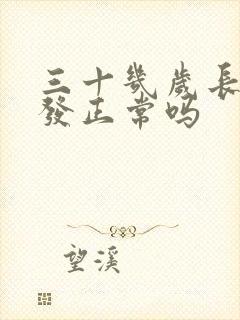 三十幾歲長
發正常吗
望溪